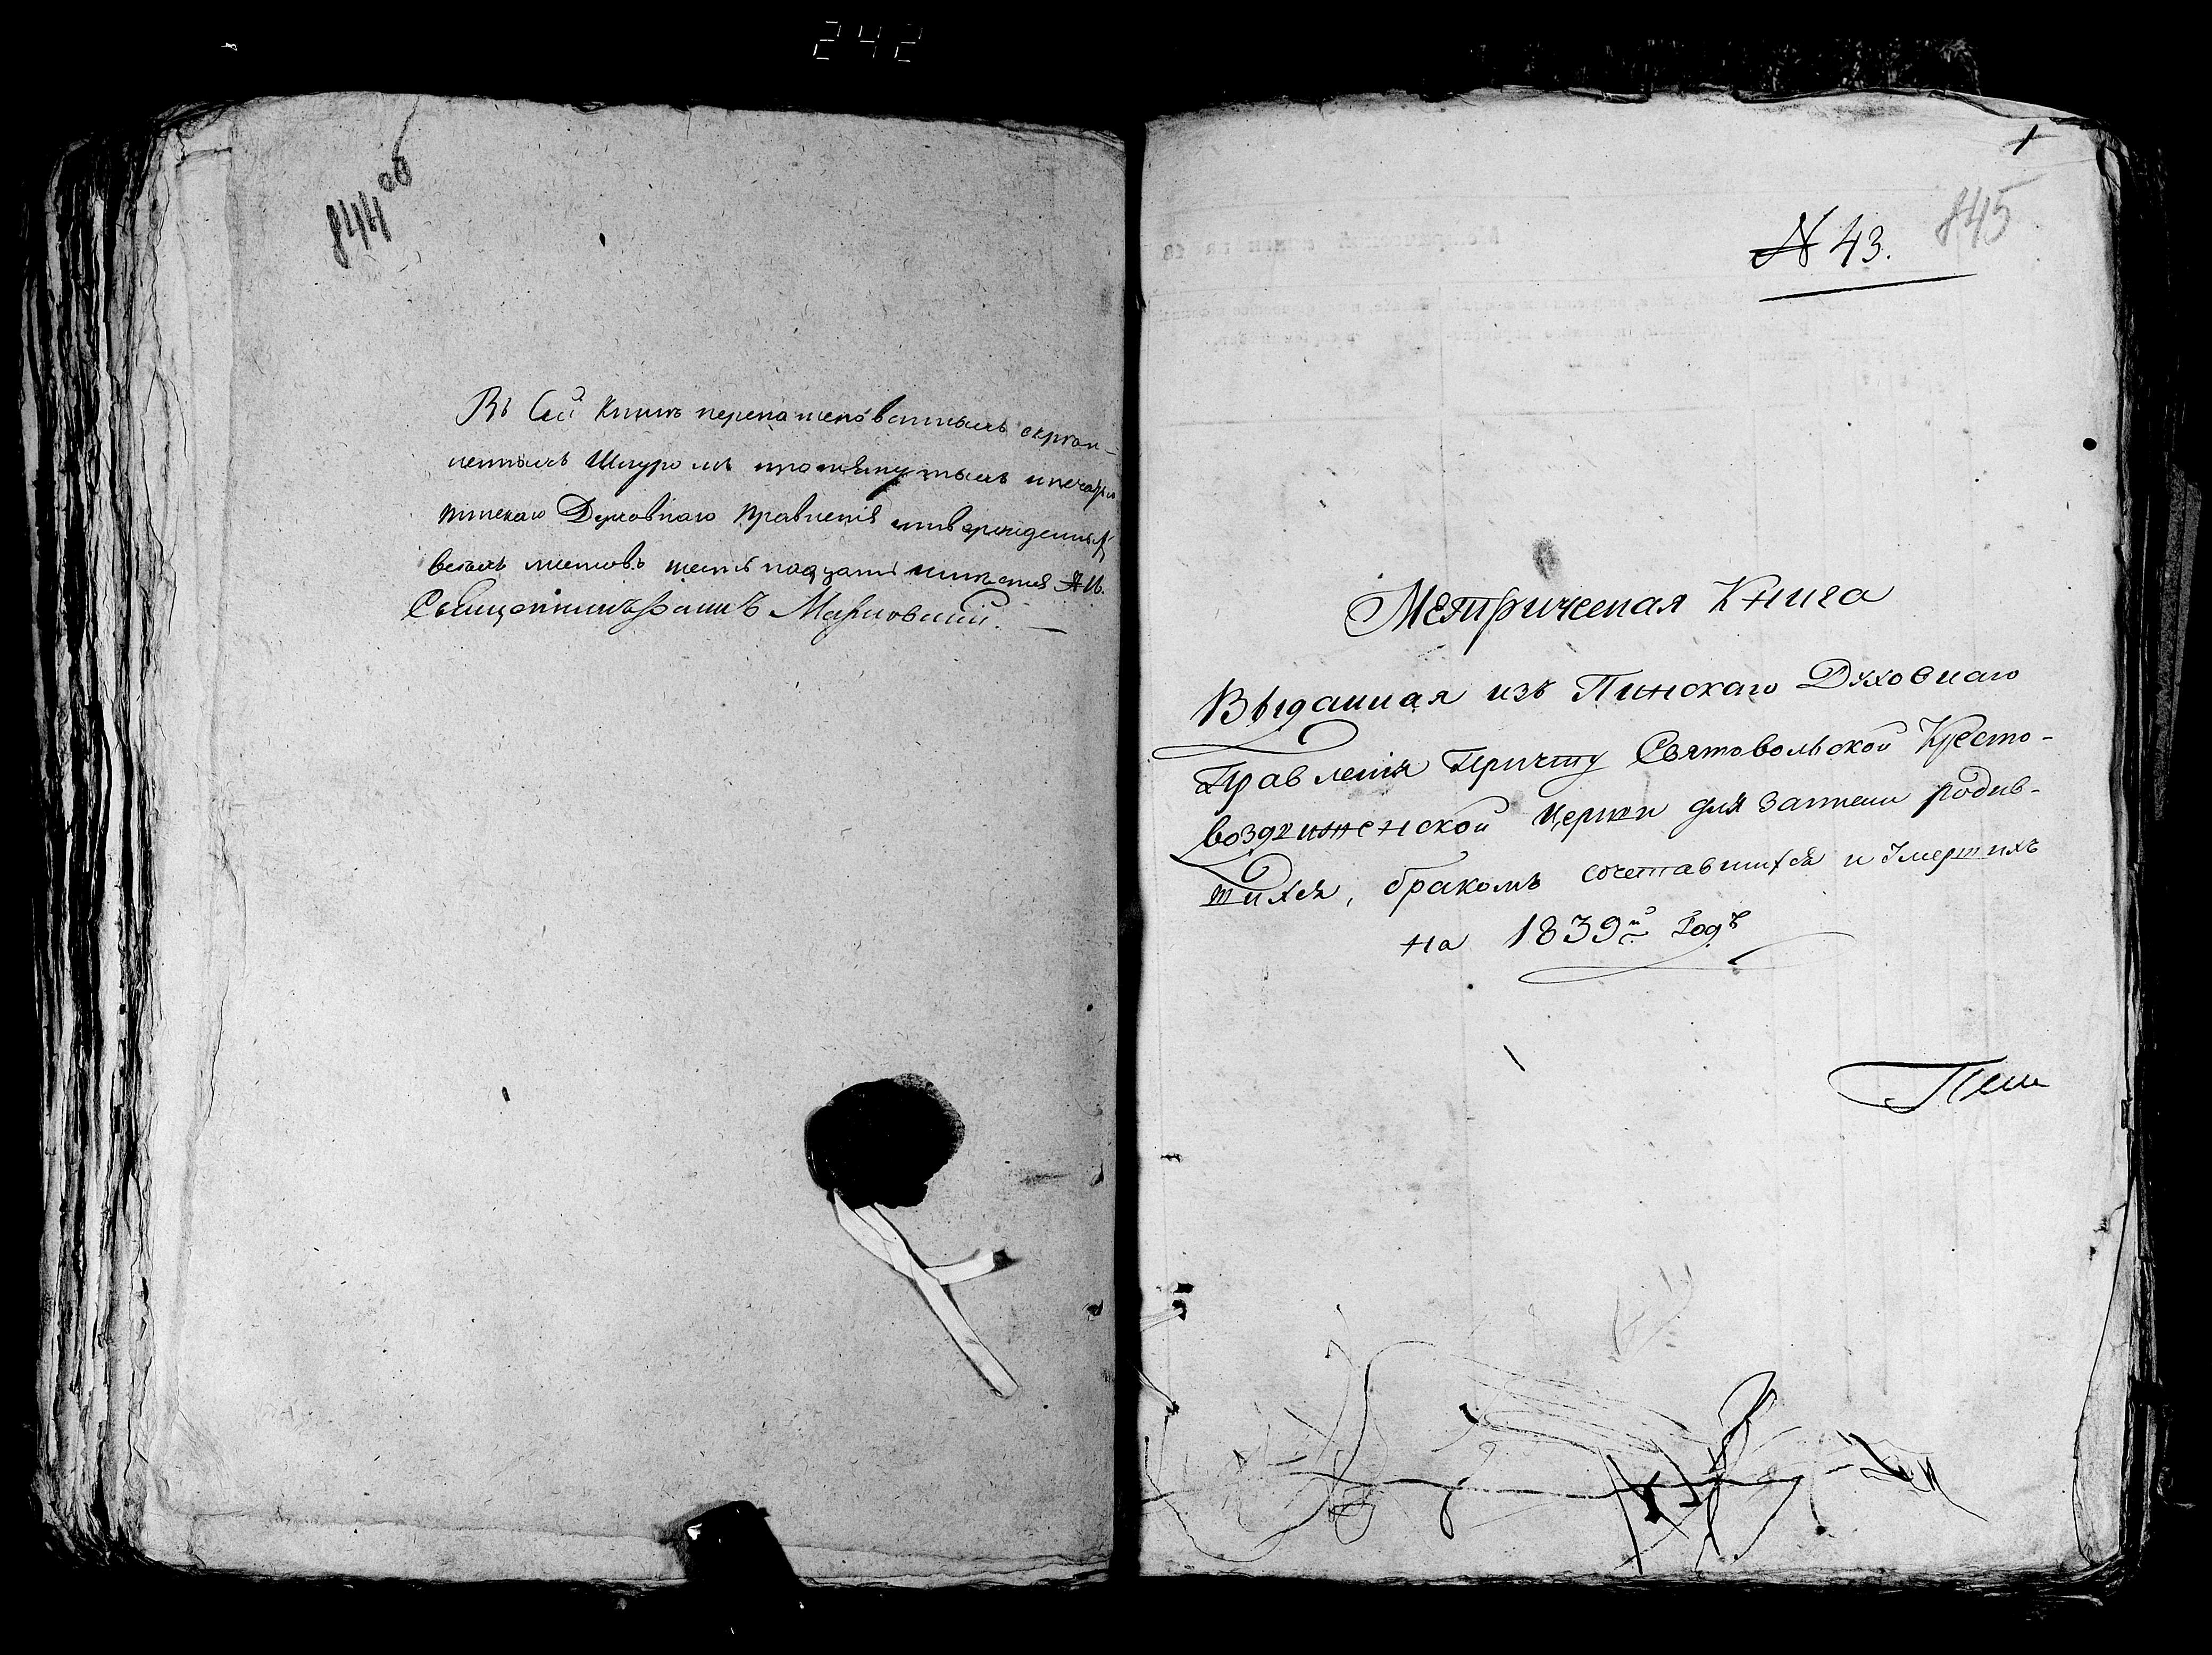 242
844 об
Въ Сей книгѣ перенашнѣрованныхъ скрѣп-
ленныхъ Шнуромъ протянутыхъ и печатью
Пинскаго Духовнаго Правленія утвержденныхъ
всѣхъ листовъ шестьнадцать
Священникъ Марковскій.
1
845
№ 43.
Метрическая Книга
Выданная изъ Пинскаго Духовнаго
Правленія Причту Святовольской Кресто-
воздвиженской Церкви для записки родив-
шихся, бракомъ сочетавшихся и умершихъ
на 1839й Годъ